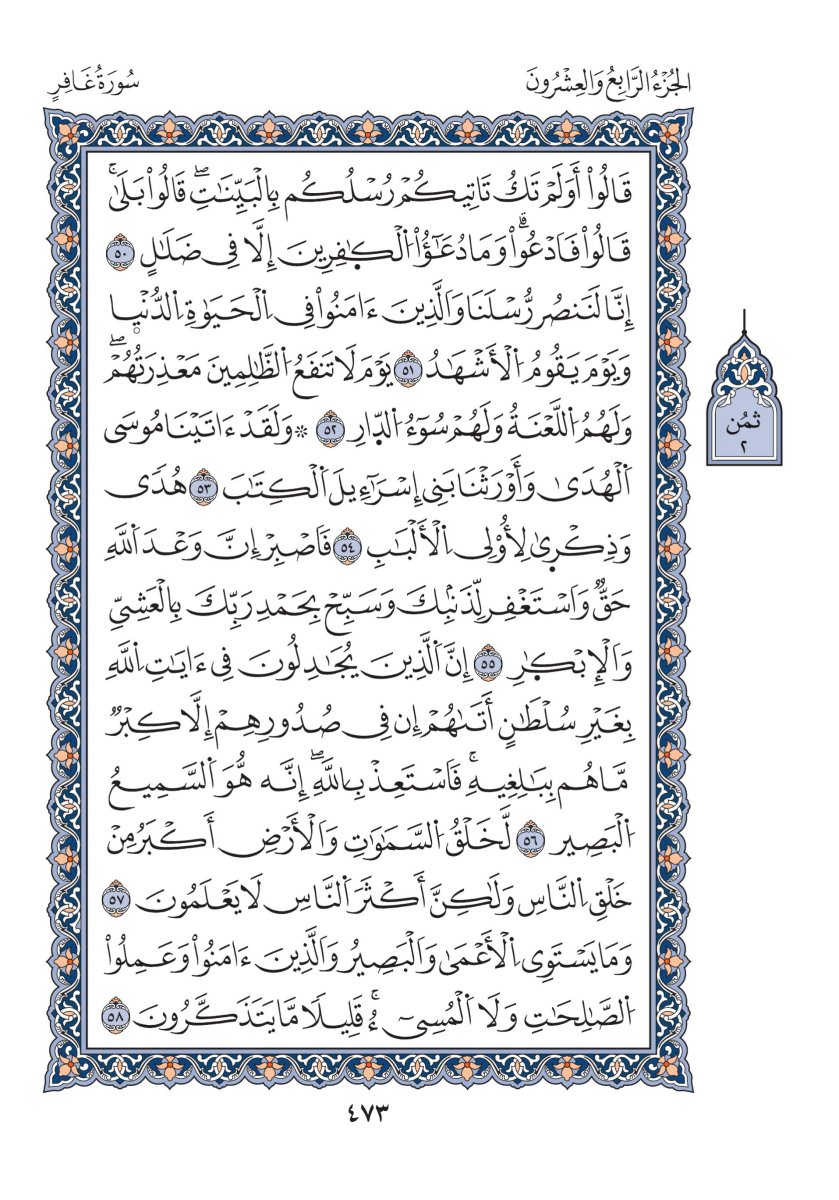 الجُزْءُ الرَّابِعُ وَالعِشْرُونَ
سُورَةُ غَافِرٍ
قَالُوٓاْ أَوَلَمْ تَكُ تَاتِيكُمْ رُسْلُكُم بِالْبَيِّنَٰتِۖ قَالُواْ بَلَىٰۚ
قَالُواْ فَادْعُواْۗ وَمَا دُعَٰٓؤُاْ الْكٰ۪فِرِينَ إِلَّا فِى ضَلَٰلٍ ٥٠
إِنَّا لَنَنصُر رُّسْلَنَا وَالَّذِينَ ءَامَنُواْ فِى الْحَيَوٰةِ الدُّنْي۪ا
وَيَوْمَ يَقُومُ الْأَشْهَٰدُ ٥١ يَوْمَ لَا تَنفَعُ الظَّٰلِمِينَ مَعْذِرَتُهُمْۖ
وَلَهُمُ اللَّعْنَةُ وَلَهُمْ سُوٓءُ الدّ۪ارِ ٥٢ ۞ وَلَقَدْ ءَاتَيْنَا مُوسَى
الْهُدَىٰ وَأَوْرَثْنَا بَنِى إِسْرَٰٓءِيلَ الْكِتَٰبَ ٥٣ هُدًى
وَذِكْر۪ىٰ لِأُوْلِى الْأَلْبَٰبِ ٥٤ فَاصْبِرْ إِنَّ وَعْدَ اللَّهِ
حَقٌّ وَاسْتَغْفِر لِّذَنۢبِكَ وَسَبِّحْ بِحَمْدِ رَبِّكَ بِالْعَشِىِّ
وَالْإِبْكٰ۪رِ ٥٥ إِنَّ الَّذِينَ يُجَٰدِلُونَ فِى ءَايَٰتِ اللَّهِ
بِغَيْرِ سُلْطَٰنٍ أَتَىٰهُمْ إِن فِى صُدُورِهِمْ إِلَّا كِبْرٌ
مَّا هُم بِبَٰلِغِيهِۚ فَاسْتَعِذْ بِاللَّهِۖ إِنَّه هُّوَ السَّمِيعُ
الْبَصِير ٥٦ لَّخَلْقُ السَّمَٰوَٰتِ وَالْأَرْضِ أَكْبَرُ مِنْ
خَلْقِ النَّاسِ وَلَٰكِنَّ أَكْثَرَ النَّاسِ لَا يَعْلَمُونَ ٥٧
وَمَا يَسْتَوِى الْأَعْمَىٰ وَالْبَصِيرُ وَالَّذِينَ ءَامَنُواْ وَعَمِلُواْ
الصَّٰلِحَٰتِ وَلَا الْمُسِىٓءُۚ قَلِيلًا مَّا يَتَذَكَّرُونَ ٥٨
ثمُن
٢
٤٧٣